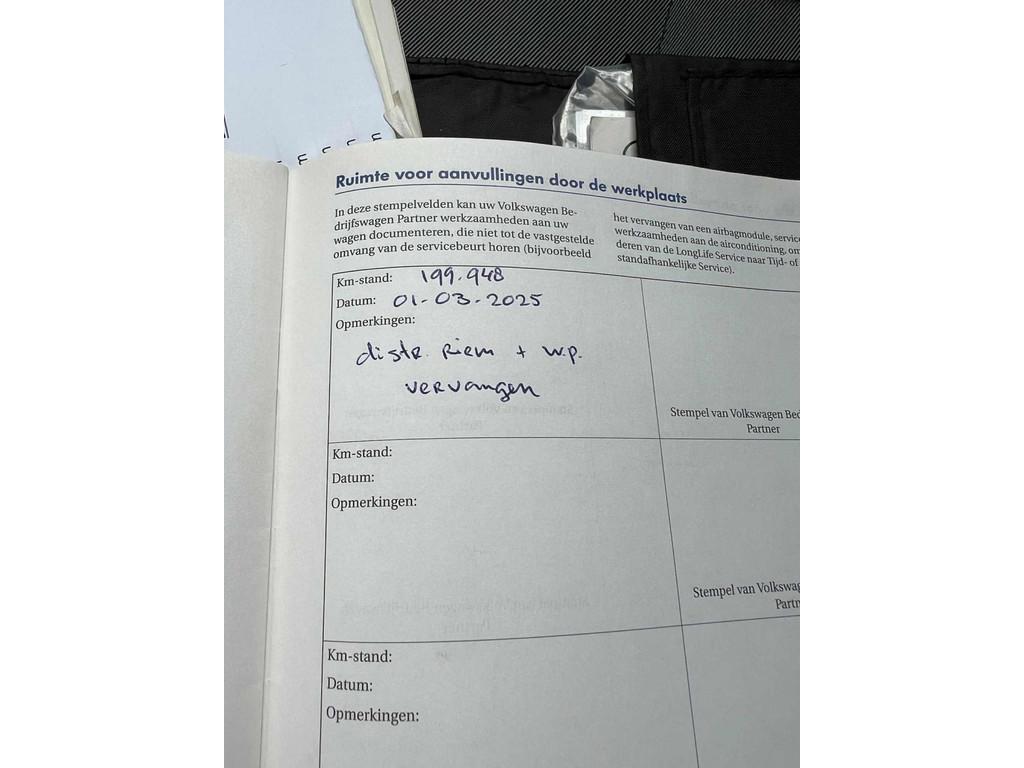 Ruimte voor aanvullingen door de werkplaats
In deze stempelvelden kan uw Volkswagen Be-
drijfswagen Partner werkzaamheden aan uw
wagen documenteren, die niet tot de vastgestelde
omvang van de servicebeurt horen (bijvoorbeeld
het vervangen van een airbagmodule, service
werkzaamheden aan de airconditioning, om
deren van de LongLife Service naar Tijd- of
standafhankelijke Service).
Km-stand: 199.948
Datum: 01-03-2025
Opmerkingen:
distr. Riem + w.p.
vervangen
Stempel van Volkswagen Bed
Partner
Km-stand:
Datum:
Opmerkingen:
Stempel van Volkswag
Partn
Km-stand:
Datum:
Opmerkingen: